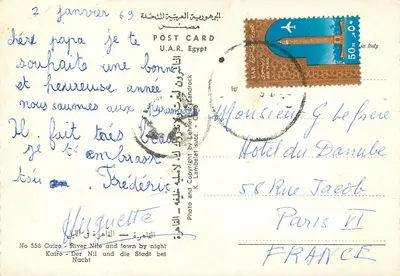 2 janvier 69
chère papa je te
souhaite une bonne
et heureuse année
nous sommes aux pyramides
Il fait très beau
je t'embrasse
Frédéric
Huguette
الجمهورية العربية المتحدة
مصر
POST CARD
U.A.R. Egypt
in Italy
50 M
U.A.R.
Photo and Copyright by Lehnert & Landrock
K. Lambelet succ. Cairo
Monsieur G. Lefèvre
Hotel du Danube
58 Rue Jacob
Paris VI
FRANCE
القاهرة
No 556 Cairo - River Nile and town by night
Kairo - Der Nil und die Stadt bei
Nacht